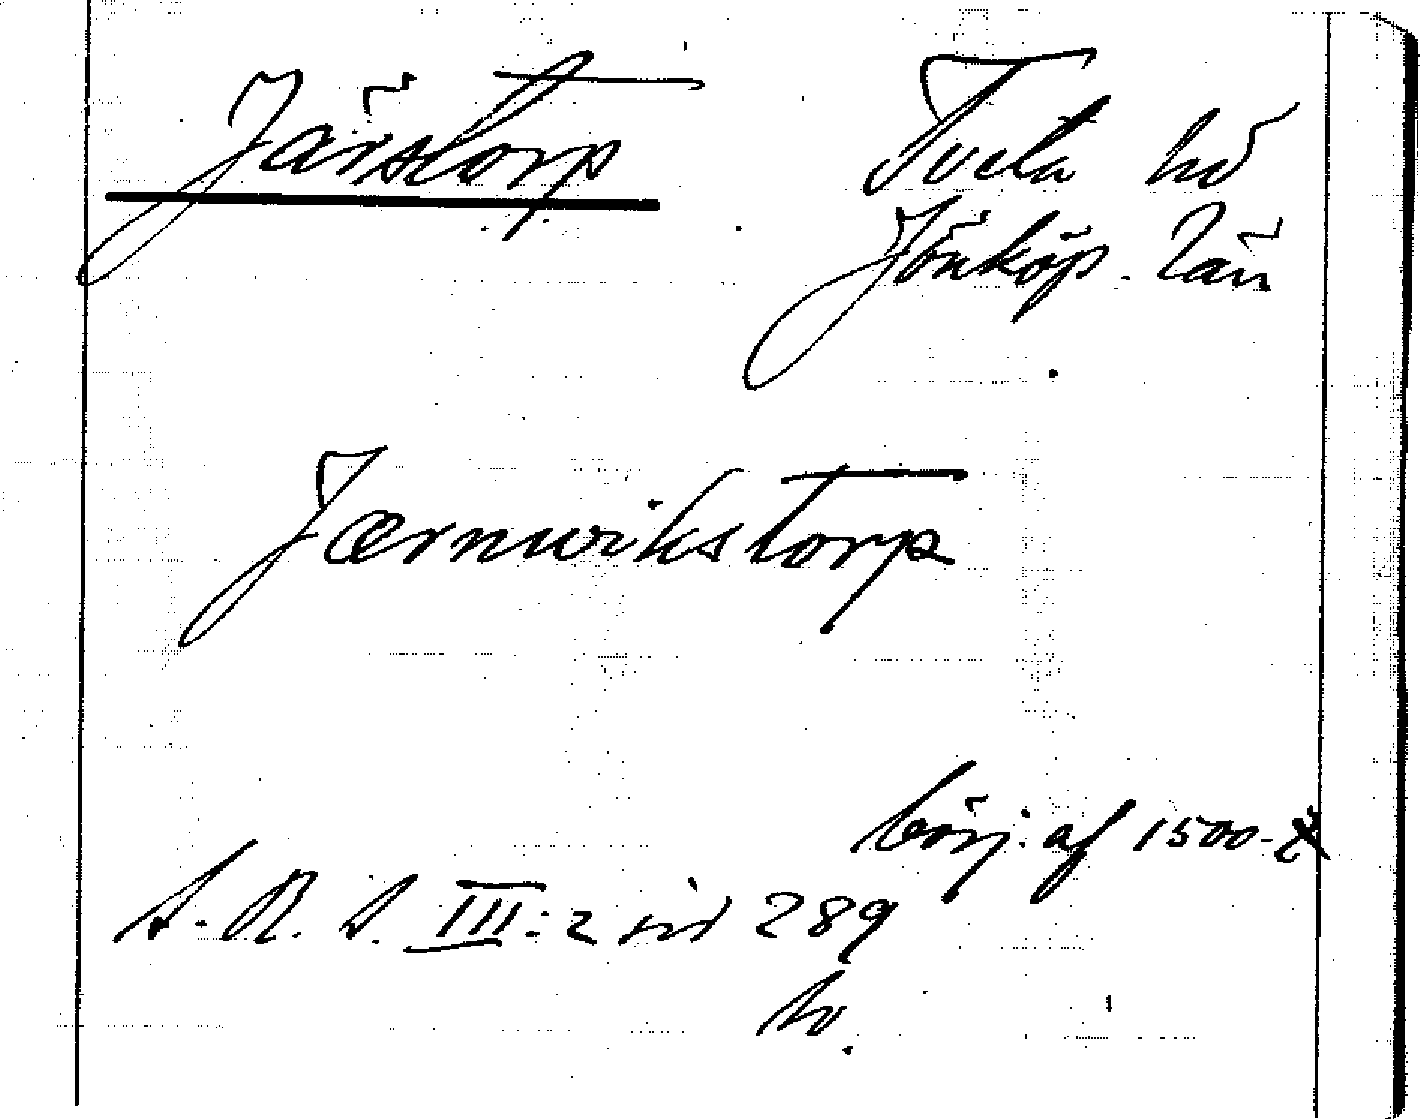 Järstorp
Tveta hd
Jönköp. län
Jærnwikstorp
börj. af 1500-t
S. R. S. III:2 sid 289